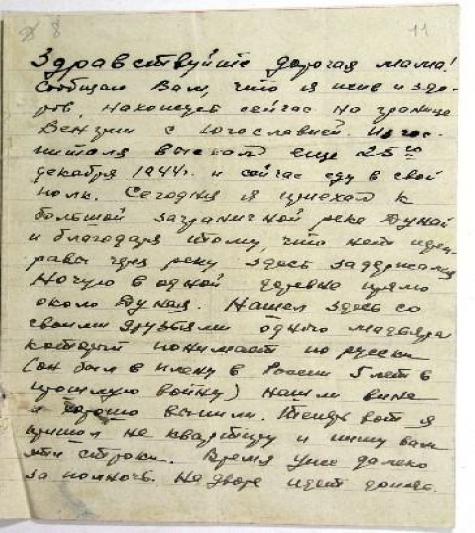 8 11
Здравствуйте дорогая мама!
Сообщаю Вам, что я жив и здо-
ров, нахожусь сейчас на границе
Венгрии с Югославией. Из гос-
питаля выехал еще 25го
декабря 1944г. и сейчас еду в свой
полк. Сегодня я приехал к
большой заграничной реке Дунай
и благодаря тому, что нет пере-
равы через реку здесь задержался
Ночую в одной деревне прямо
около Дуная. Нашел здесь со
своими друзьями одного мадьяра
который понимает по русски
(он был в плену в России 5 лет в
прошлую войну) нашли вина
и хорошо выпили. Теперь вот я
пришел на квартиру и пишу вам
эти строки. Время уже далеко
за полночь. На дворе идет дождь.